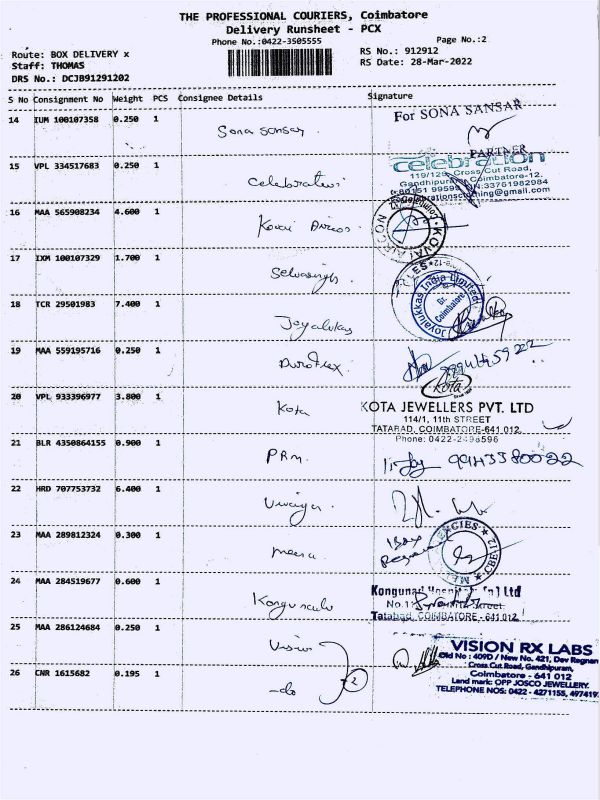 THE PROFESSIONAL COURIERS, Coimbatore
Delivery Runsheet - PCX
Phone No.:0422-3505555
Page No.:2
Route: BOX DELIVERY x
RS No.: 912912
Staff: THOMAS
RS Date: 28-Mar-2022
DRS No.: DCJB91291202
S No Consignment No Weight PCS Consignee Details Signature
14 IUM 100107358 0.250 1 Sona Sansar For SONA SANSAR
PARTNER
15 VPL 334517683 0.250 1 celebration
119/129, Cross Cut Road,
Gandhipuram, Coimbatore-12.
16 MAA 565908234 4.600 1 Kovai Aircos KOVAI AIRCON
17 IXM 100107329 1.700 1 Selvasingh
18 TCR 29501983 7.400 1 Joyalukas Joyalukkas India Limited
Coimbatore
19 MAA 559195716 0.250 1 Duroflex
20 VPL 933396977 3.800 1 Kota Kota
KOTA JEWELLERS PVT. LTD
114/1, 11th STREET
TATABAD, COIMBATORE-641 012.
21 BLR 4350864155 0.900 1 PRM 9943380022
22 HRD 707753732 6.400 1
23 MAA 289812324 0.300 1 meera
24 MAA 284519677 0.600 1 Kongunadu Kongunad
Tatabad, COIMBATORE - 641 012.
25 MAA 286124684 0.250 1 Vision VISION RX LABS
Old No : 409D / New No. 421, Dav Ragnan
Cross Cut Road, Gandhipuram,
Coimbatore - 641 012
Land mark: OPP JOSCO JEWELLERY.
TELEPHONE NOS: 0422 - 4271155, 497419
26 CNR 1615682 0.195 1 -do 2